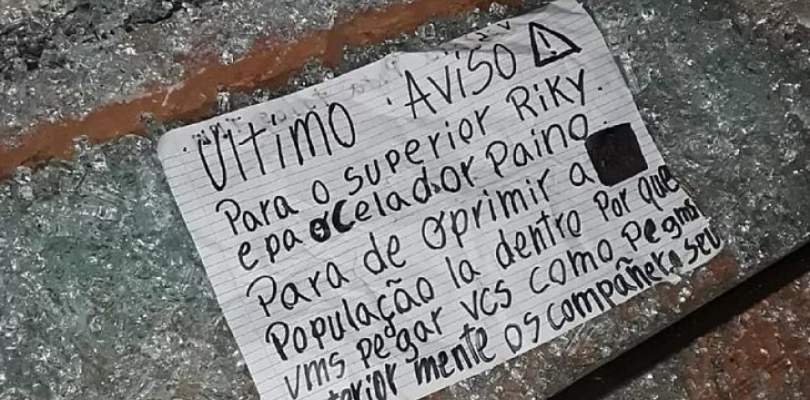 Ultimo Aviso
Para o superior Riky.
e pa o Celador Paino.
Para de oprimir a
População la dentro Por que
vms pegar vcs como pegms
terior mente os compañero seu